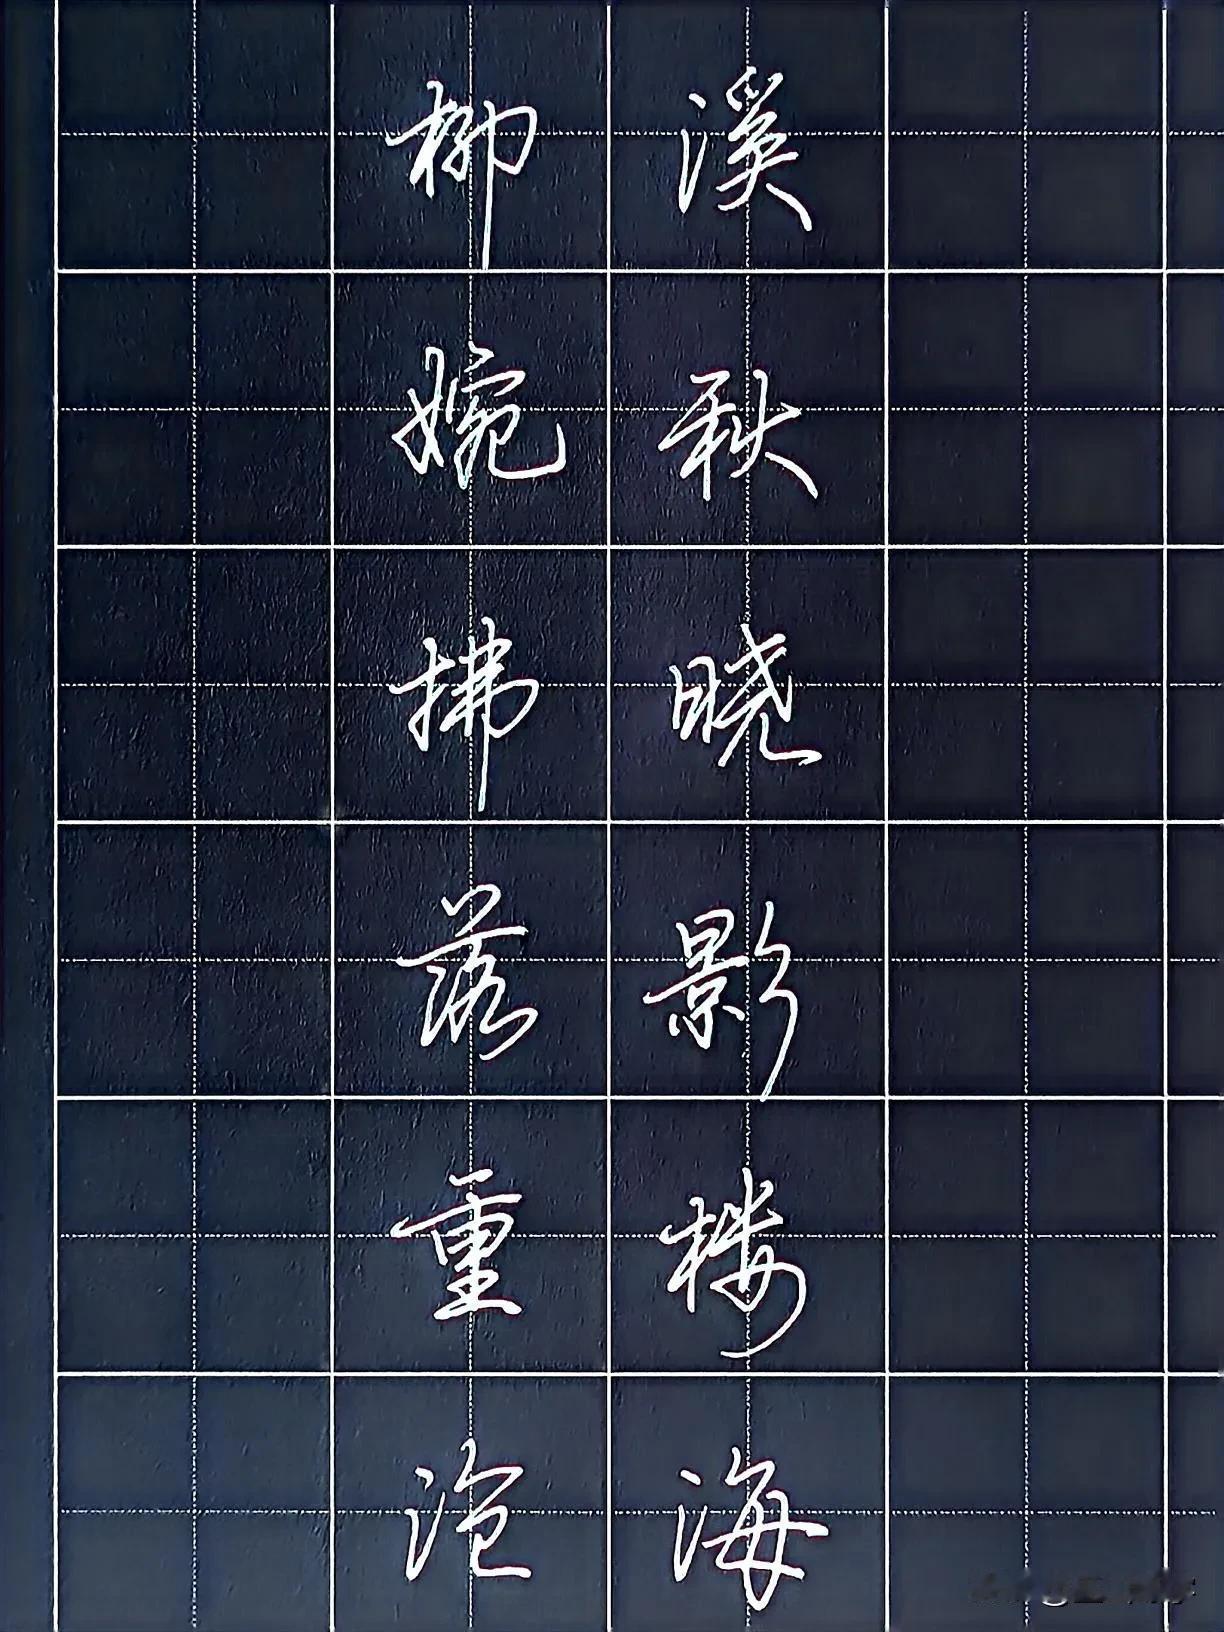 柳溪
婉秋
拂晓
落影
重楼
沧海